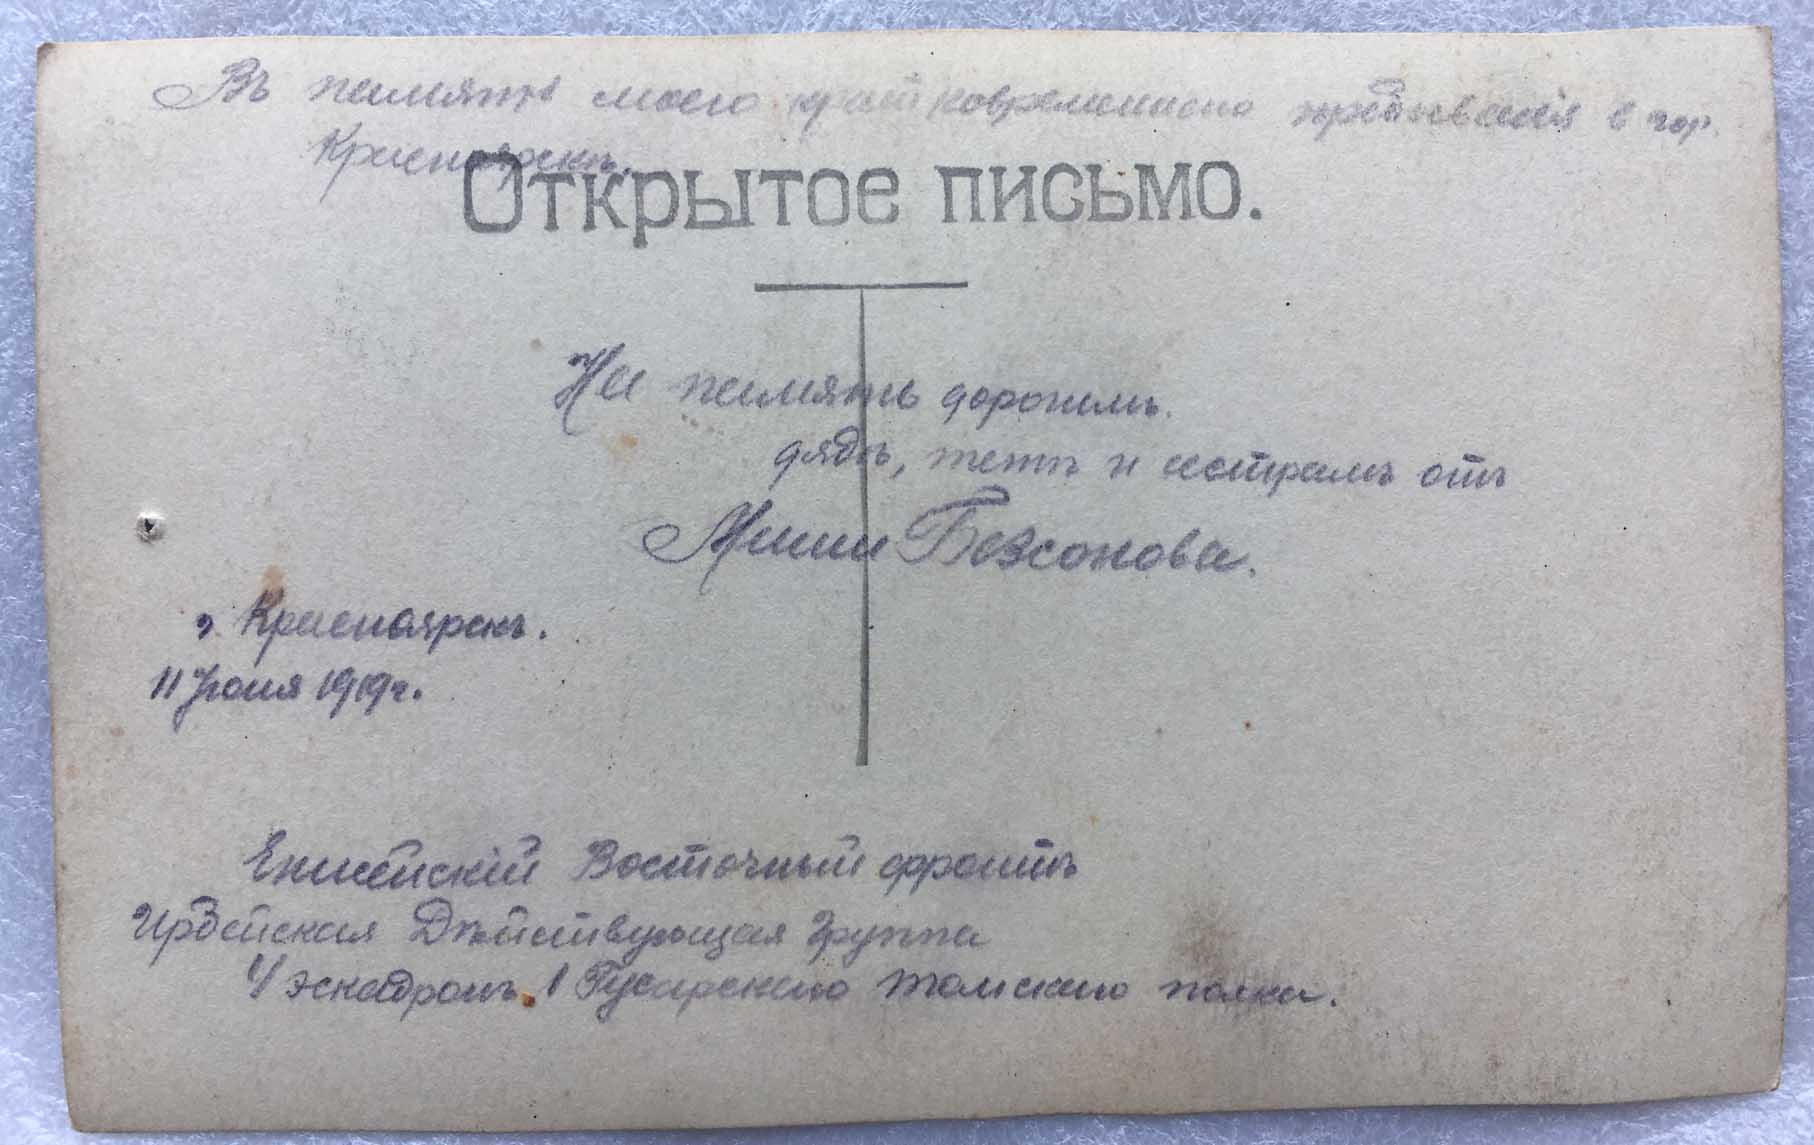 Въ память моего кратковременнаго пребыванія в гор.
Красноярскѣ.
Открытое письмо.
На память дорогимъ
дядѣ, тетѣ и сестрамъ отъ
Миши Безсонова.
г. Красноярскъ.
11 Іюля 1919 г.
Енисейскій Восточный фронтъ
Ирбейская Дѣйствующая Группа
4 эскадронъ 1 Гусарскаго Томскаго полка.